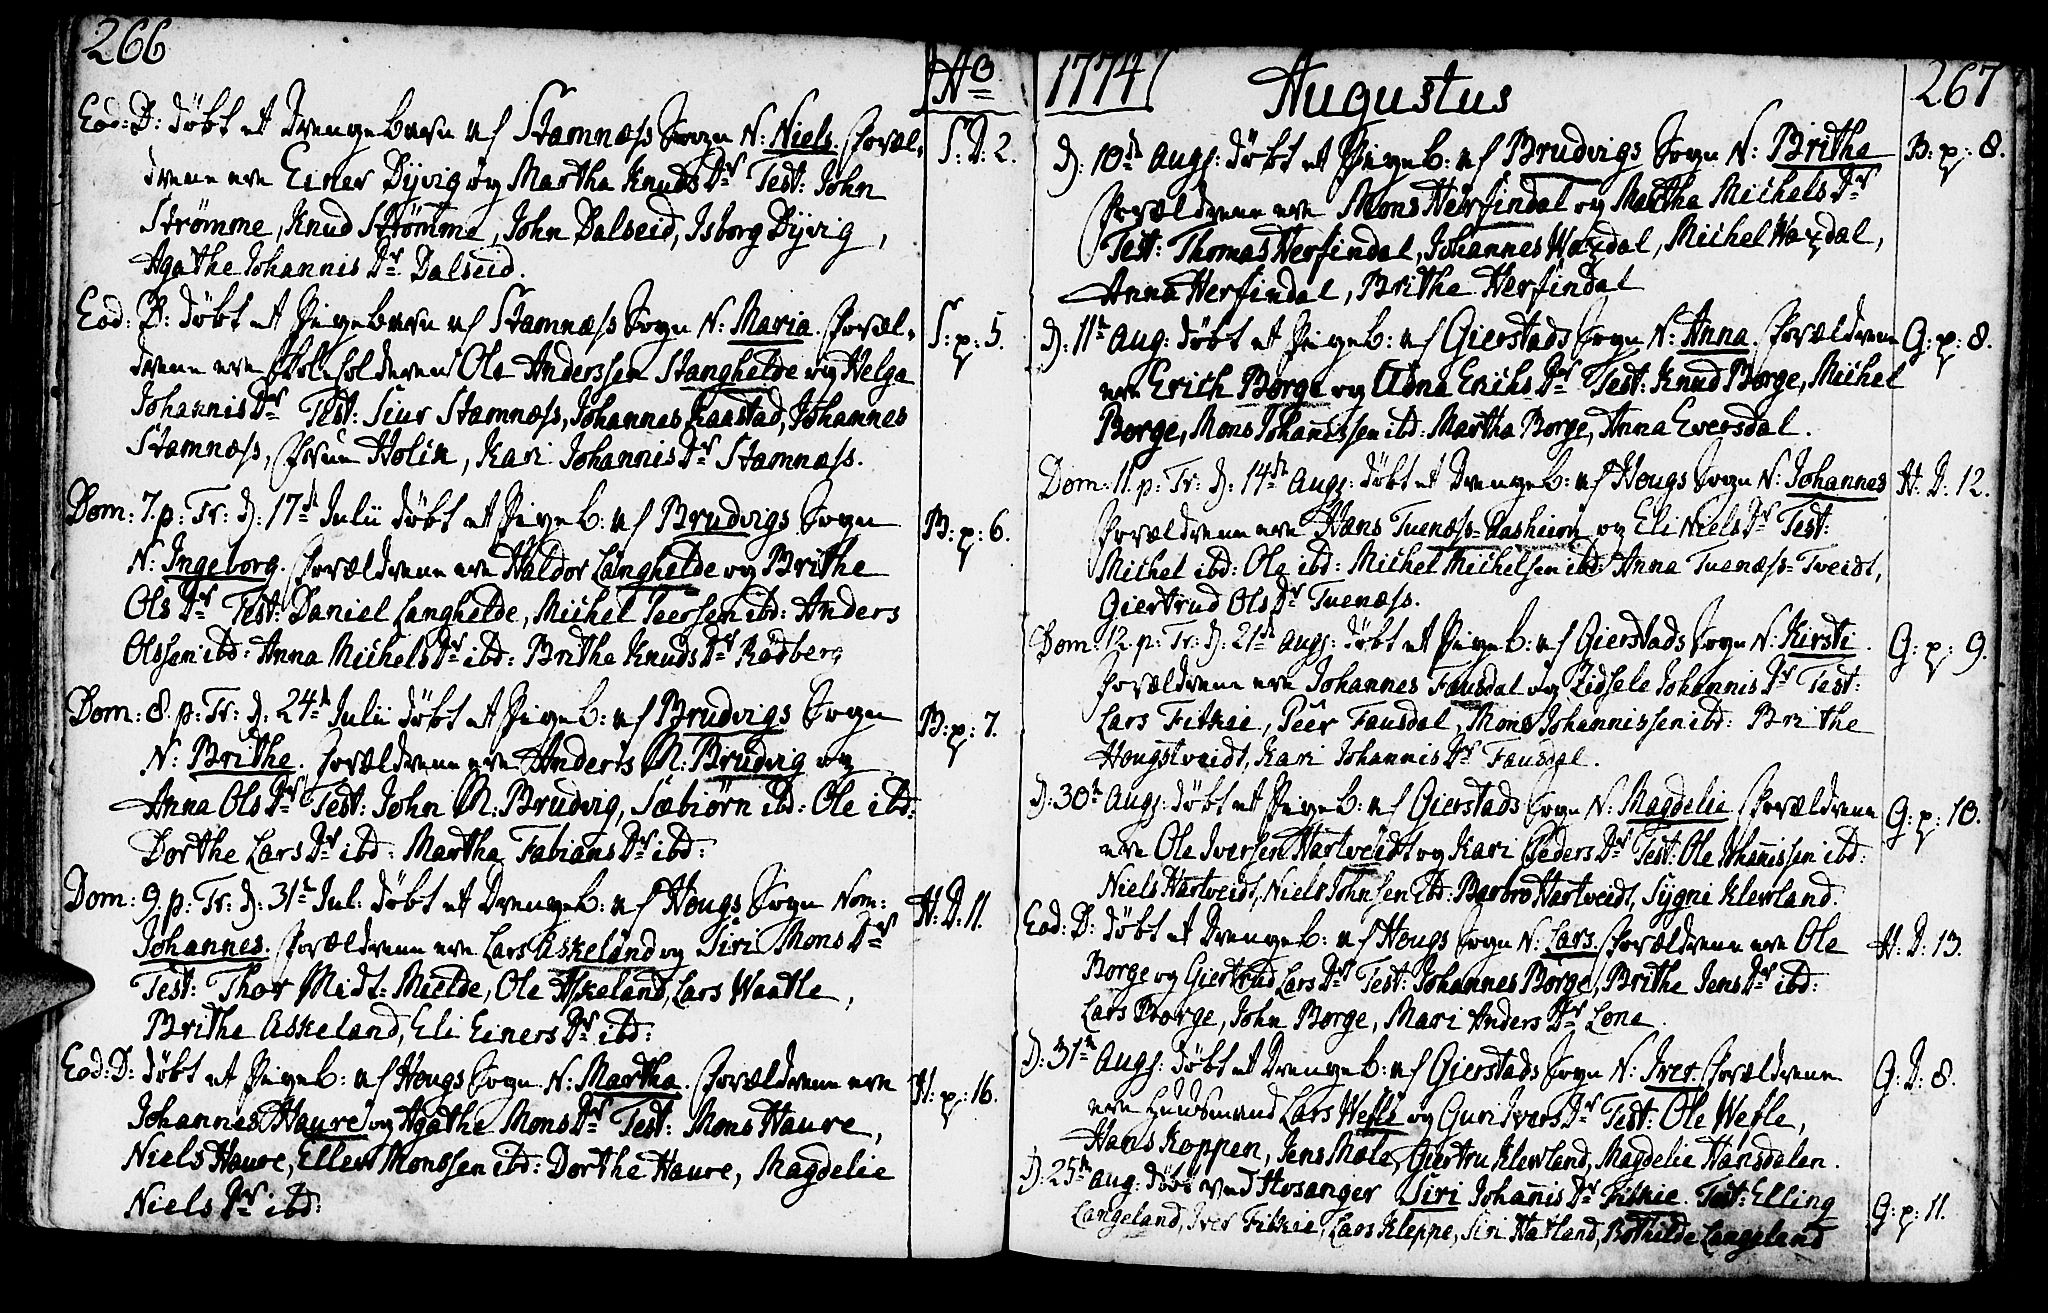 266
Ao
Eod: D: døbt et Drengebarn af Stamnæss Sogn N: Niels. Foræl-
S: D: 2.
drene ere Einer Dyvig og Martha Knuds Dr Test: John
Strømme, Knud Strømme, John Dalseid, Isborg Dyvig,
Agathe Johannis Dr Dalseid.
Eod: D: døbt et Pigebarn af Stamnæss Sogn N: Maria. Foræl-
S: p: 5.
drene ere Skoleholderen Ole Anderssen Stanghelde og Helga
Johannis Dr Test: Siur Stamnæss, Johannes Kaastad, Johannes
Stamnæss, Holix, Kari Johannis Dr Stamnæss.
Dom: 7. p: Tr: D: 17de Julii døbt et Pigeb: af Brudvigs Sogn
B: p: 6.
N: Ingeborg. Forældrene ere Haldor Langhelde og Brithe
Ols Dr Test: Daniel Langhelde, Michel Peerssen ibd: Anders
Olssen ibd: Anna Michels Dr ibd: Brithe Knuds Dr Rødberg
Dom: 8. p: Tr: D: 24de Julii døbt et Pigeb: af Brudvigs Sogn
B: p: 7.
N: Brithe. Forældrene ere Anders M. Brudvig og
Anna Ols Dr Test: John M. Brudvig, Sæbiørn ibd: Ole ibd:
Dorthe Lars Dr ibd: Martha Fabians Dr ibd:
Dom: 9. p: Tr: D: 31te Jul: døbt et Drengeb: af Hougs Sogn Nom:
H: D: 11.
Johannes. Forældrene ere Lars Askeland og Siri Mons Dr
Test: Thor Midt-Mielde, Ole Askeland, Lars Waatle,
Brithe Askeland, Eli Einers Dr ibd:
Eod: D: døbt et Pigeb: af Hougs Sogn N: Martha. Forældrene ere
H: p: 16.
Johannes Haure og Agathe Mons Dr Test: Mons Haure,
Niels Haure, Ellev Monssen ibd: Dorthe Haure, Magdelie
Niels Dr ibd:
1774
Augustus
267
D: 10de Aug: døbt et Pigeb: af Brudvigs Sogn N: Britha
B: p: 8.
Forældrene ere Mons Herfindal og Martha Michels Dr
Test: Thomas Herfindal, Johannes Waxdal, Michel Waxdal,
Anna Herfindal, Brithe Herfindal
D: 11te Aug: døbt et Pigeb: af Gierstads Sogn N: Anna. Forældrene
G: p: 8.
ere Erich Borge og Adna Erichs Dr Test: Knud Borge, Michel
Borge, Mons Johannissen ibd: Martha Borge, Anna Eversdal.
Dom: 11. p: Tr: D: 14de Aug: døbt et Drengeb: af Hougs Sogn N: Johannes
H: D: 12.
Forældrene ere Hans Tuenæss- og Eli Niels Dr Test:
Michel ibd: Ole ibd: Michel Michelsen ibd: Anna Tuenæss-Tveidt,
Giertrud Ols Dr Tuenæss.
Dom: 12. p: Tr: D: 21de Aug: døbt et Pigeb: af Gierstads Sogn N: Kirsti.
G: p: 9.
Forældrene ere Johannes Fausdal og Zidsele Johannis Dr Test:
Lars Fitkie, Peer Fausdal, Mons Johannissen ibd: Brithe
Hougstveidt, Kari Johannis Dr Fausdal.
D: 30te Aug: døbt et Pigeb: af Gierstads Sogn N: Magdelie Forældrene
G: p: 10.
ere Ole Iversen Hartveidt og Kari Peders Dr Test: Ole Johannissen ibd:
Niels Hartveidt, Niels Johnsen ibd: Barbro Hartveidt, Sygni Klevland.
Eod: D: døbt et Drengeb: af Hougs Sogn N: Lars. Forældrene ere Ole
H: D: 13.
Borge og Giertrud Lars Dr Test: Johannes Borge, Brithe Jens Dr ibd:
Lars Borge, John Borge, Mari Anders Dr Lone.
D: 31te Aug: døbt et Drengeb: af Gierstads Sogn N: Iver. Forældrene
G: D: 8.
ere Huusmand Lars Wefle og Guri Ivers Dr Test: Ole Wefle,
Hans Koppen, Jens Mæle, Giertru Klevland, Magdelie Hansdalen.
D: 25de Aug: døbt ved Hosanger Siri Johannis Dr Fitkie. Test: Elling
G: p: 11.
Langeland, Iver Fitkie, Lars Kleppe, Siri Hatland, Bothilde Langeland